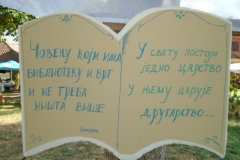 Човеку који има
библиотеку и врт
и не треба
ништа више.
Цицерон
У свету постоји
једно царство
у њему царује
другарство...